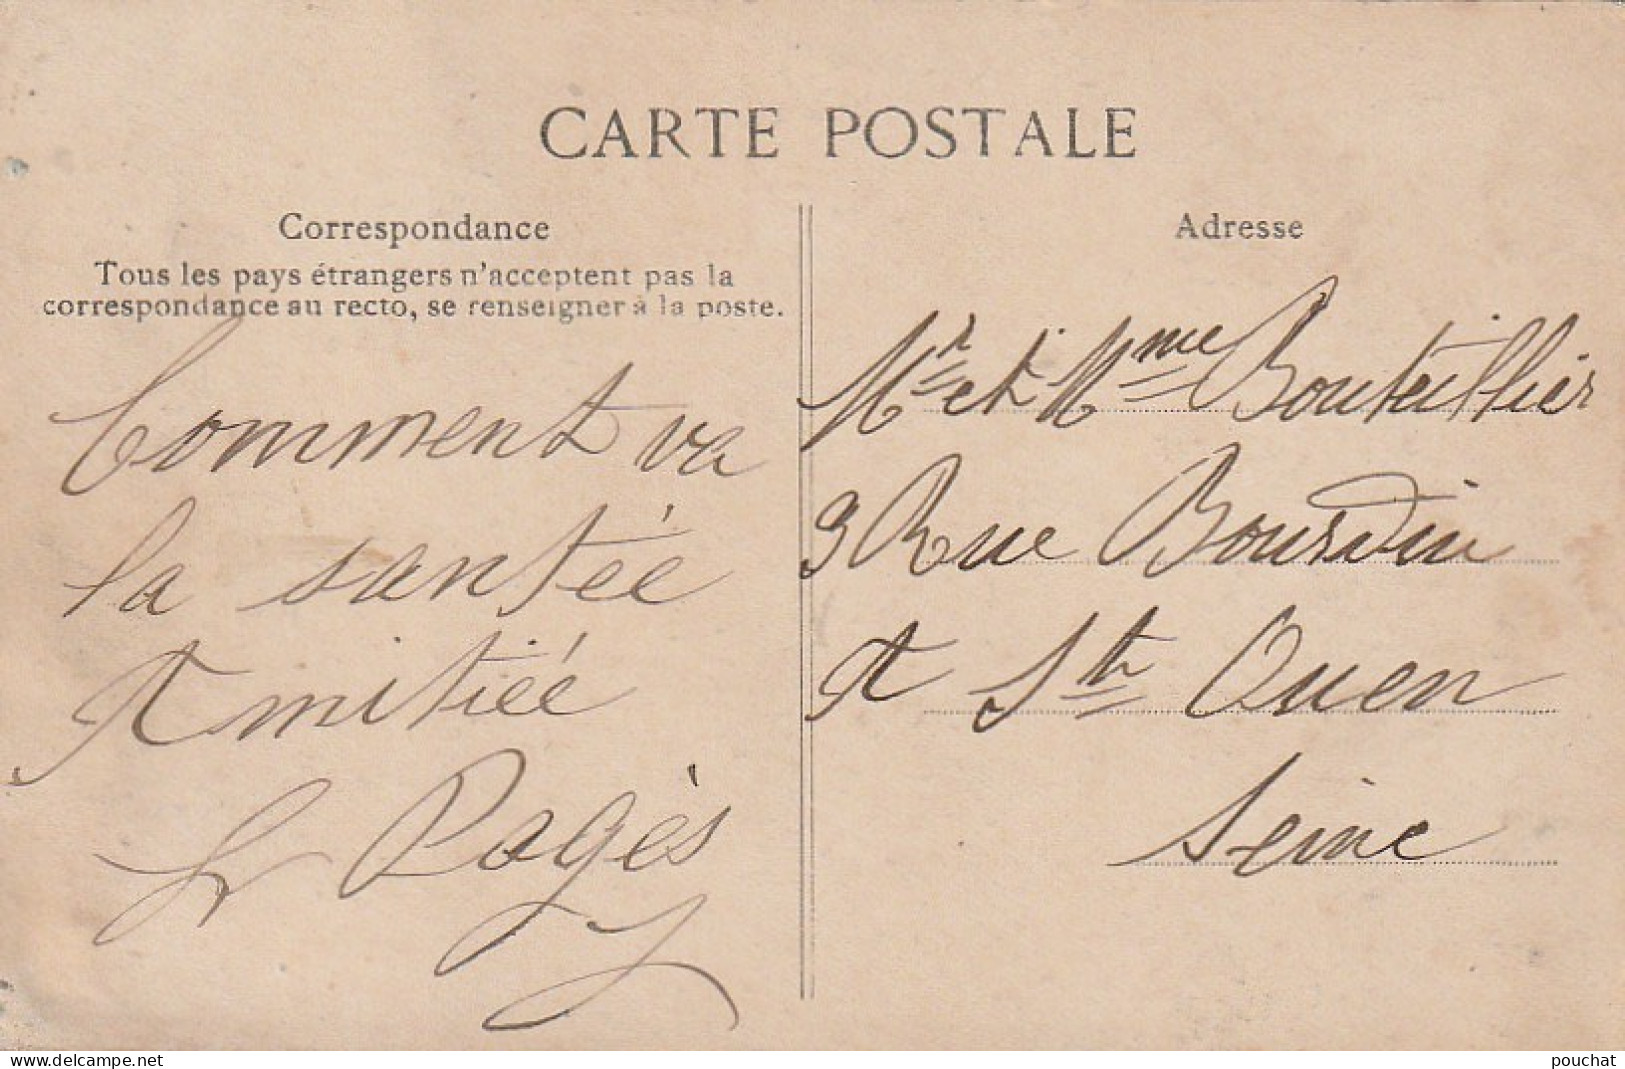 CARTE POSTALE
Correspondance
Tous les pays étrangers n'acceptent pas la
correspondance au recto, se renseigner à la poste.
Comment va
la santée
Amitiée
L Pagès
Adresse
Mr et Mme Bouteillier
3 Rue Bourdin
A St Ouen
Seine
www.delcampe.net
pouchat